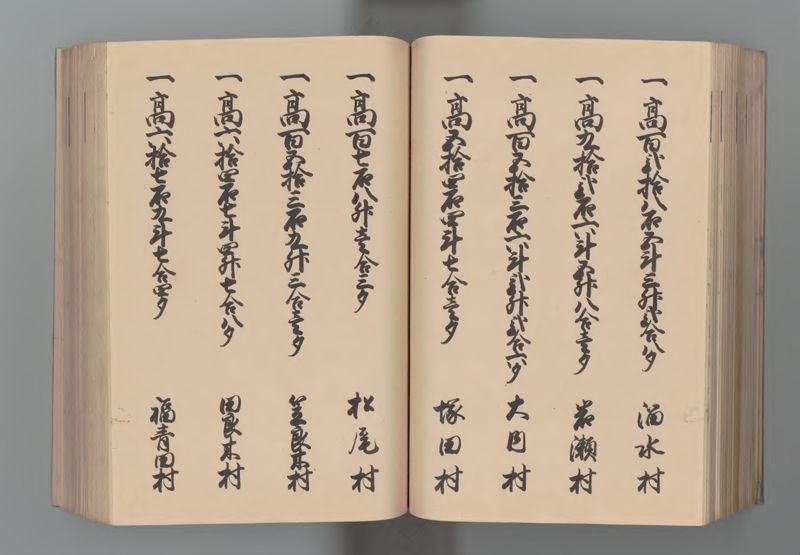 一高百弐拾八石五斗三升弐合八夕 溜水村
一高九拾弐石六斗五升八合壱夕 岩瀬村
一高百五拾三石六斗弐升弐合六夕 大月村
一高五拾四石四斗七合壱夕 塚田村
一高百七石八升壱合三夕 松尾村
一高百五拾三石九升三合壱夕 笠良木村
一高六拾四石七斗四升七合八夕 田良木村
一高六拾七石九斗七合四夕 福青田村